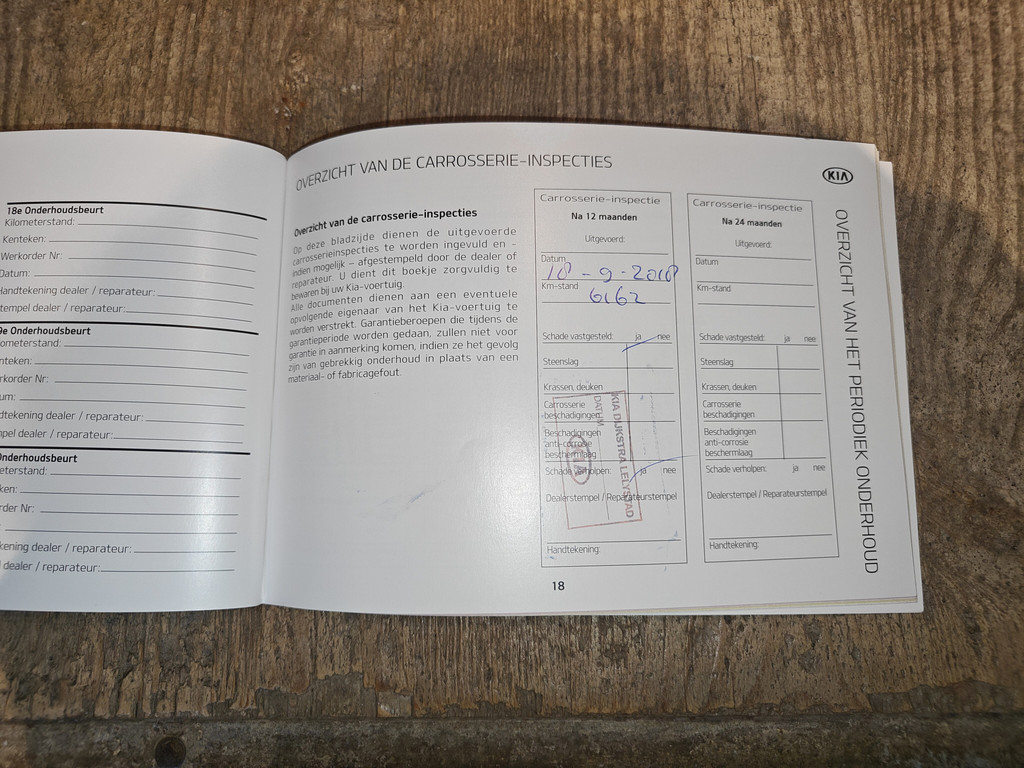 18e Onderhoudsbeurt
Kilometerstand:
Kenteken:
Werkorder Nr:
Datum:
Handtekening dealer / reparateur:
tempel dealer / reparateur:
9e Onderhoudsbeurt
ometerstand:
nteken:
rkorder Nr:
um:
dtekening dealer / reparateur:
mpel dealer / reparateur:
Onderhoudsbeurt
eterstand:
ken:
rder Nr:
:
kening dealer / reparateur:
dealer / reparateur:
OVERZICHT VAN DE CARROSSERIE-INSPECTIES
Overzicht van de carrosserie-inspecties
Op deze bladzijde dienen de uitgevoerde
carrosserieinspecties te worden ingevuld en -
indien mogelijk – afgestempeld door de dealer of
reparateur. U dient dit boekje zorgvuldig te
bewaren bij uw Kia-voertuig.
Alle documenten dienen aan een eventuele
opvolgende eigenaar van het Kia-voertuig te
worden verstrekt. Garantieberoepen die tijdens de
garantieperiode worden gedaan, zullen niet voor
garantie in aanmerking komen, indien ze het gevolg
zijn van gebrekkig onderhoud in plaats van een
materiaal- of fabricagefout.
Carrosserie-inspectie
Na 12 maanden
Uitgevoerd:
Datum
18-9-2018
Km-stand
6162
Schade vastgesteld: ja nee
Steenslag
Krassen, deuken
Carrosserie
beschadigingen
Beschadigingen
anti-corrosie
beschermlaag
Schade verholpen: ja nee
Dealerstempel / Reparateurstempel
Handtekening:
KIA DIJKSTRA LELYSTAD
DATUM
KIA
Carrosserie-inspectie
Na 24 maanden
Uitgevoerd:
Datum
Km-stand
Schade vastgesteld: ja nee
Steenslag
Krassen, deuken
Carrosserie
beschadigingen
Beschadigingen
anti-corrosie
beschermlaag
Schade verholpen: ja nee
Dealerstempel / Reparateurstempel
Handtekening:
KIA
OVERZICHT VAN HET PERIODIEK ONDERHOUD
18